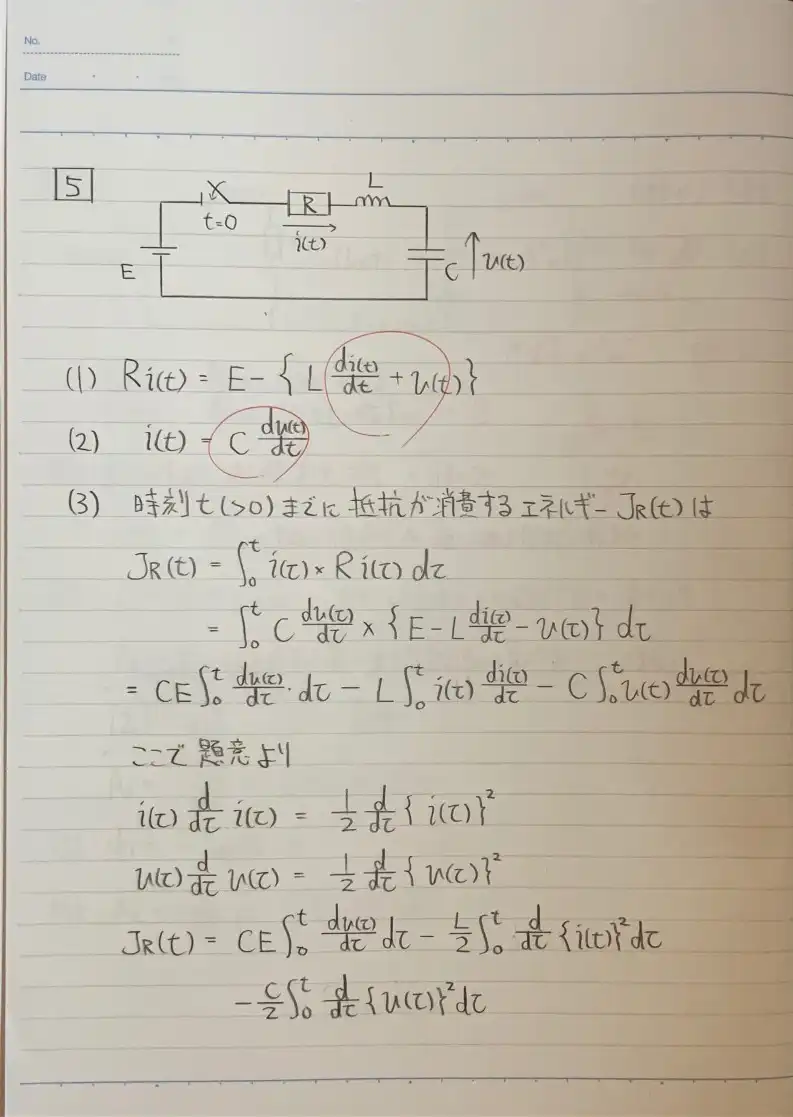 No.
Date
5
L
R
t=0
i(t)
E
C
v(t)
(1) Ri(t) = E - { L di(t)/dt + v(t) }
(2) i(t) = C dv(t)/dt
(3) 時刻t(>0)までに抵抗が消費するエネルギーJR(t)は
JR(t) = ∫₀ᵗ i(τ) × R i(τ) dτ
= ∫₀ᵗ C dv(τ)/dτ × { E - L di(τ)/dτ - v(τ) } dτ
= CE ∫₀ᵗ dv(τ)/dτ · dτ - L ∫₀ᵗ i(τ) di(τ)/dτ - C ∫₀ᵗ v(τ) dv(τ)/dτ dτ
ここで題意より
i(τ) d/dτ i(τ) = 1/2 d/dτ { i(τ) }²
v(τ) d/dτ v(τ) = 1/2 d/dτ { v(τ) }²
JR(t) = CE ∫₀ᵗ dv(τ)/dτ dτ - L/2 ∫₀ᵗ d/dτ { i(τ) }² dτ
- C/2 ∫₀ᵗ d/dτ { v(τ) }² dτ